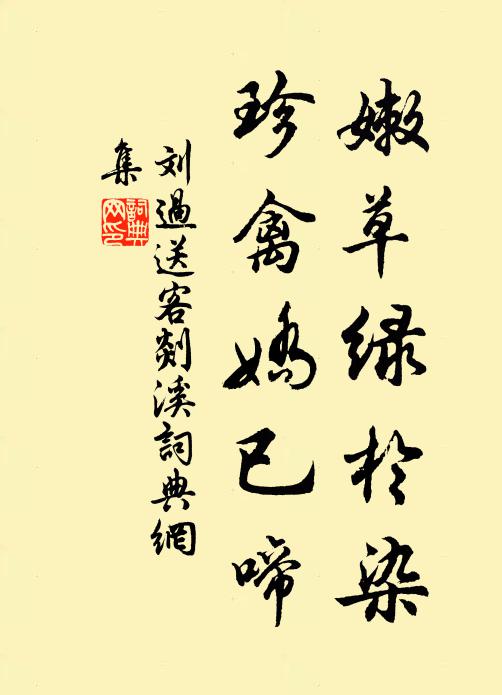 嫩草绿於染
珍禽娇已啼
刘過送客剡溪詞典網
集
詞典网印